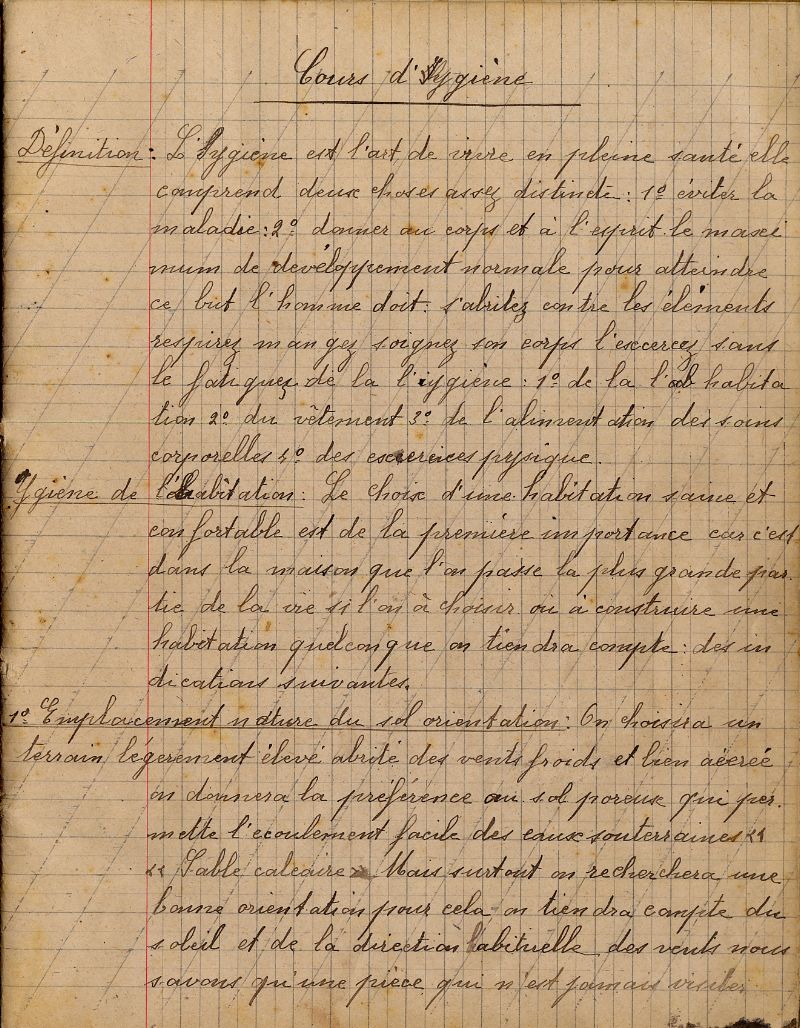 Cours d'Hygiène
Définition : L'Hygiène est l'art de vivre en pleine santé elle
comprend deux choses assez distincte : 1º éviter la
maladie : 2º donner au corps et à l'esprit le maxi
mum de dévéloppement normale pour atteindre
ce but l'homme doit : s'abritez contre les éléments
respirez mangez soignez son corps l'excercez sans
le de la l'iygiène : 1º de la habita
tion 2º du vêtement 3º de l'alimentation des soins
corporelles 4º des excercices pysique.
Ygiène de l'habitation : Le choix d'une habitation saine et
confortable est de la première importance car c'est
dans la maison que l'on passe la plus grande par
tie de la vie si l'on à choisir où à construire une
habitation quelconque on tiendra compte : des in
dications suivantes.
1º Emplacement nature du sol orientation : On choisira un
terrain légerement élevé abrité des vents froids et bien aéereé
on donnera la préférence au sol poreux qui per
mette l'écoulement facile des eaux souterraines <<
<< Sable calcaire >> Mais surtout on recherchera une
bonne orientation pour cela on tiendra compte du
soleil et de la direction habituelle des vents nous
savons qu'une pièce qui n'est jamais visitée